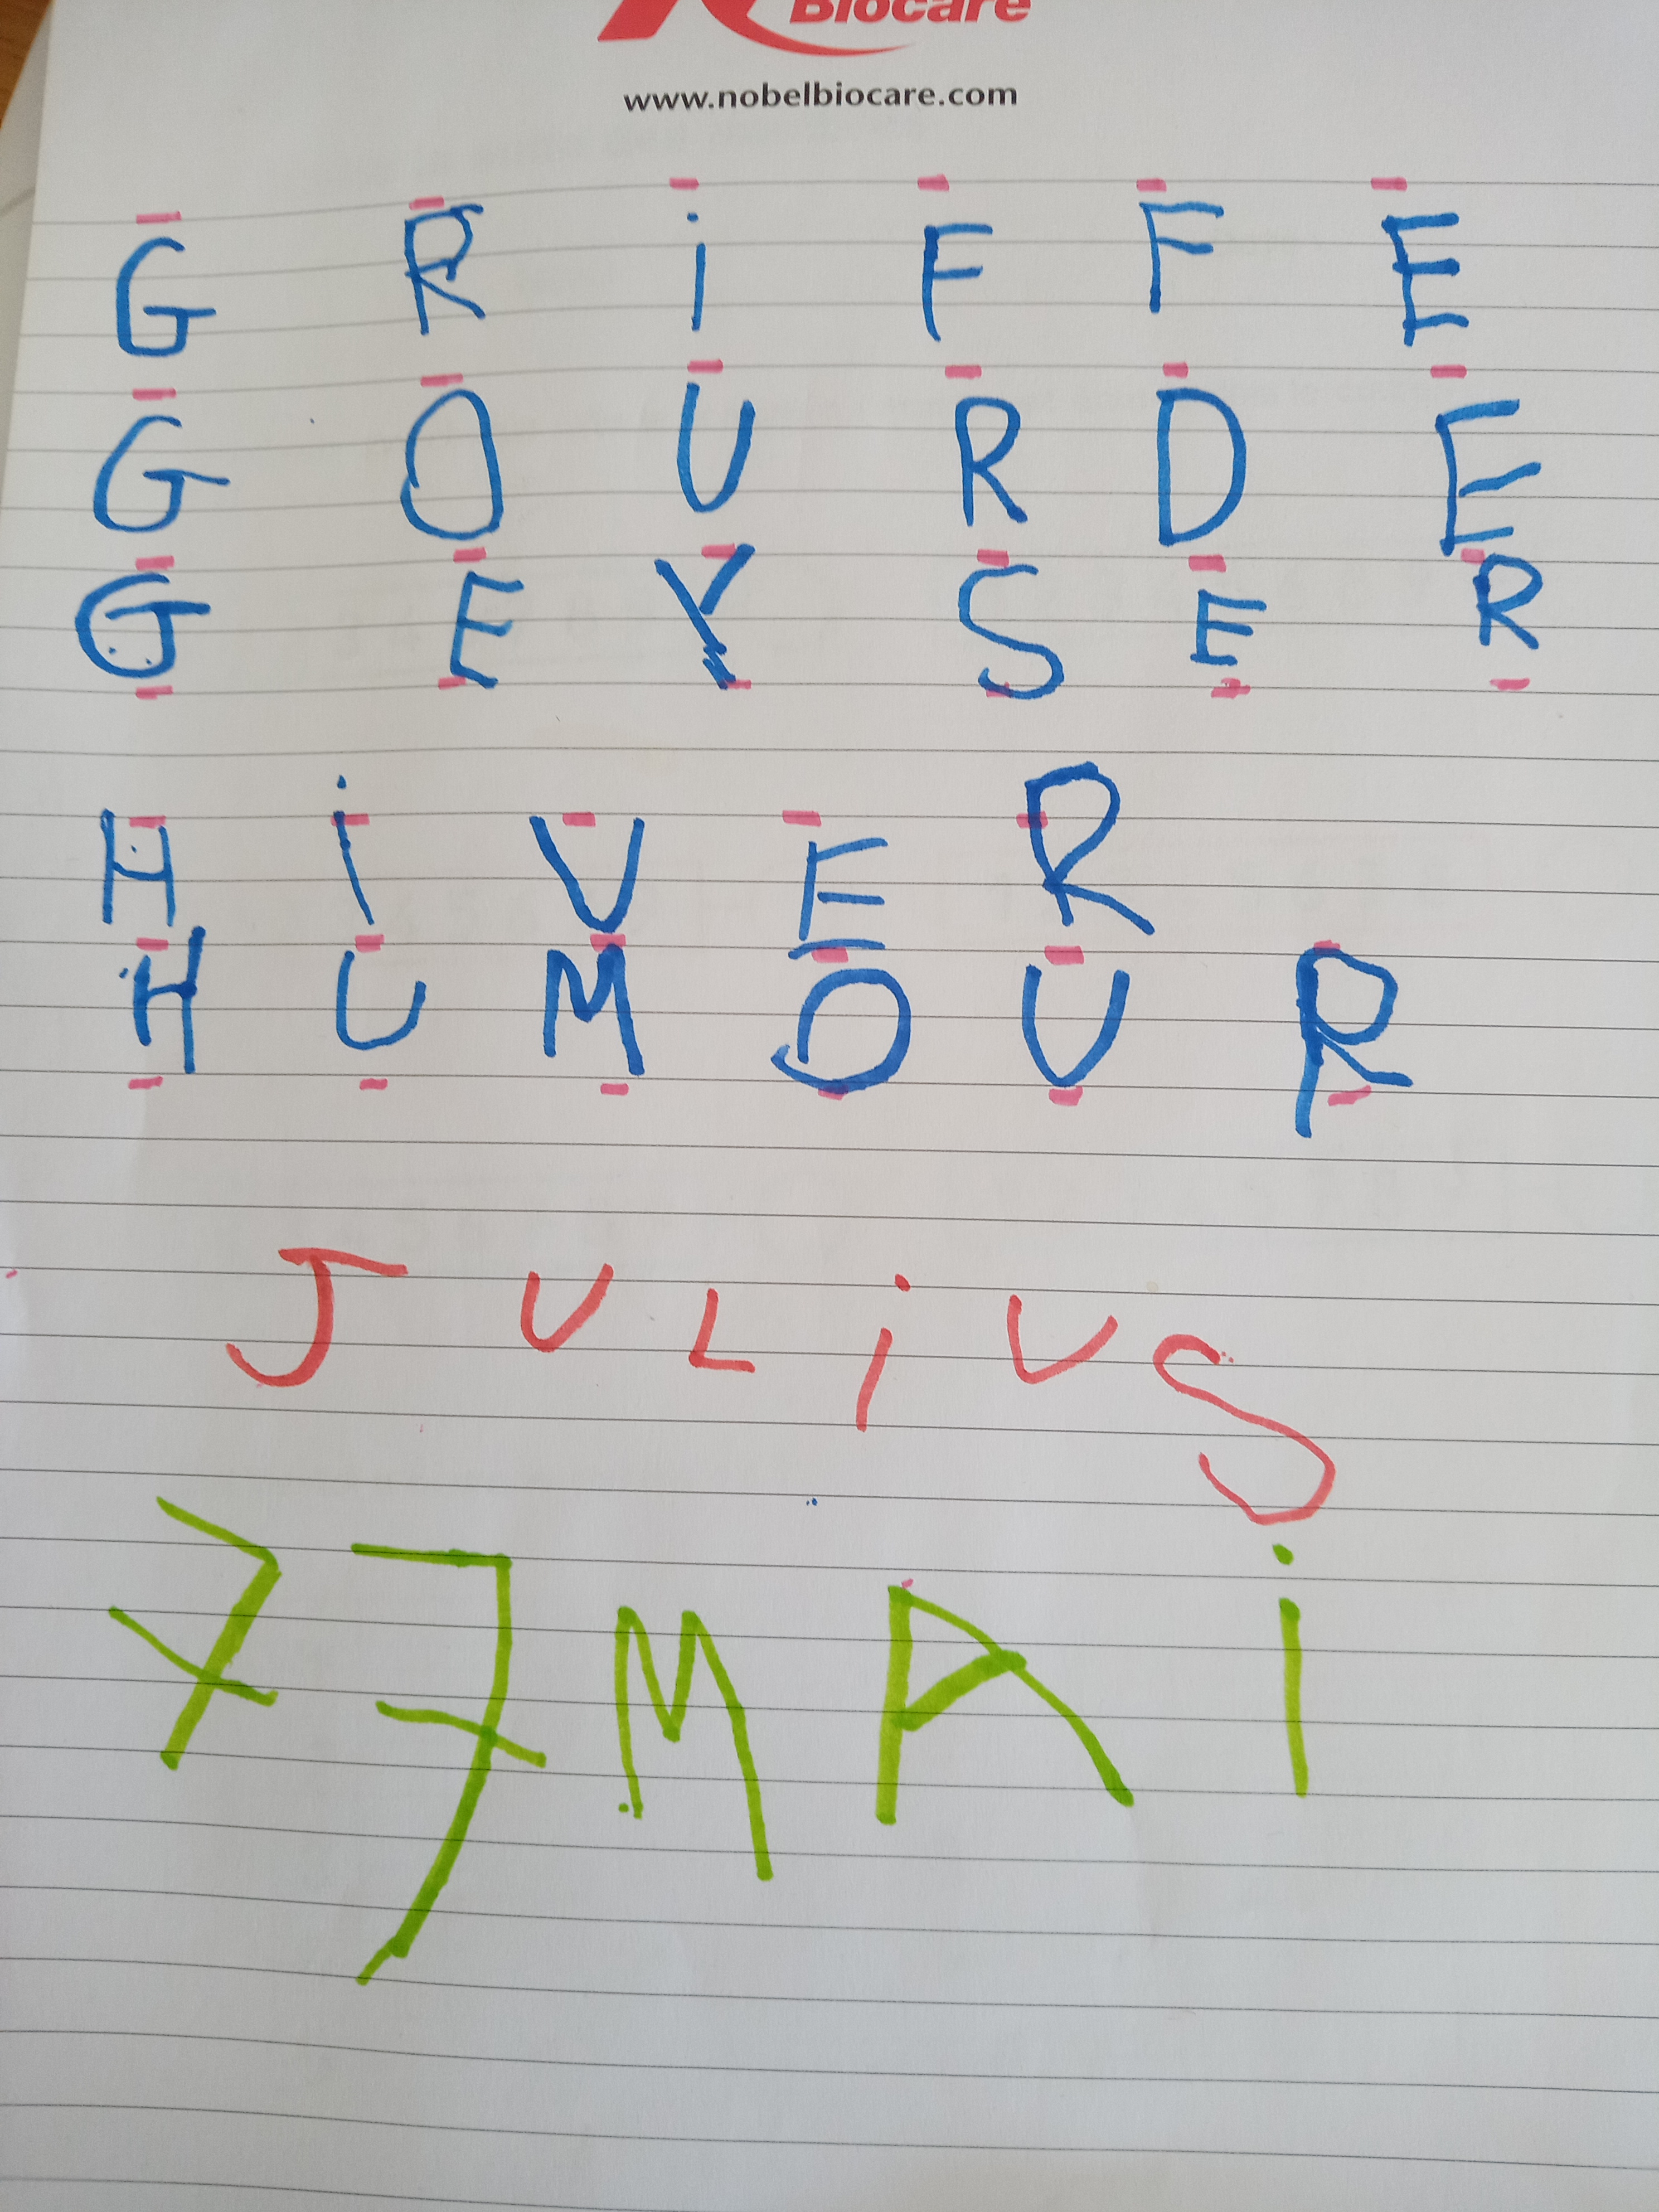 Biocare
www.nobelbiocare.com
GRiFFE
GOURDE
GEYSER
HiVER
HUMOUR
JULiUS
77MAi